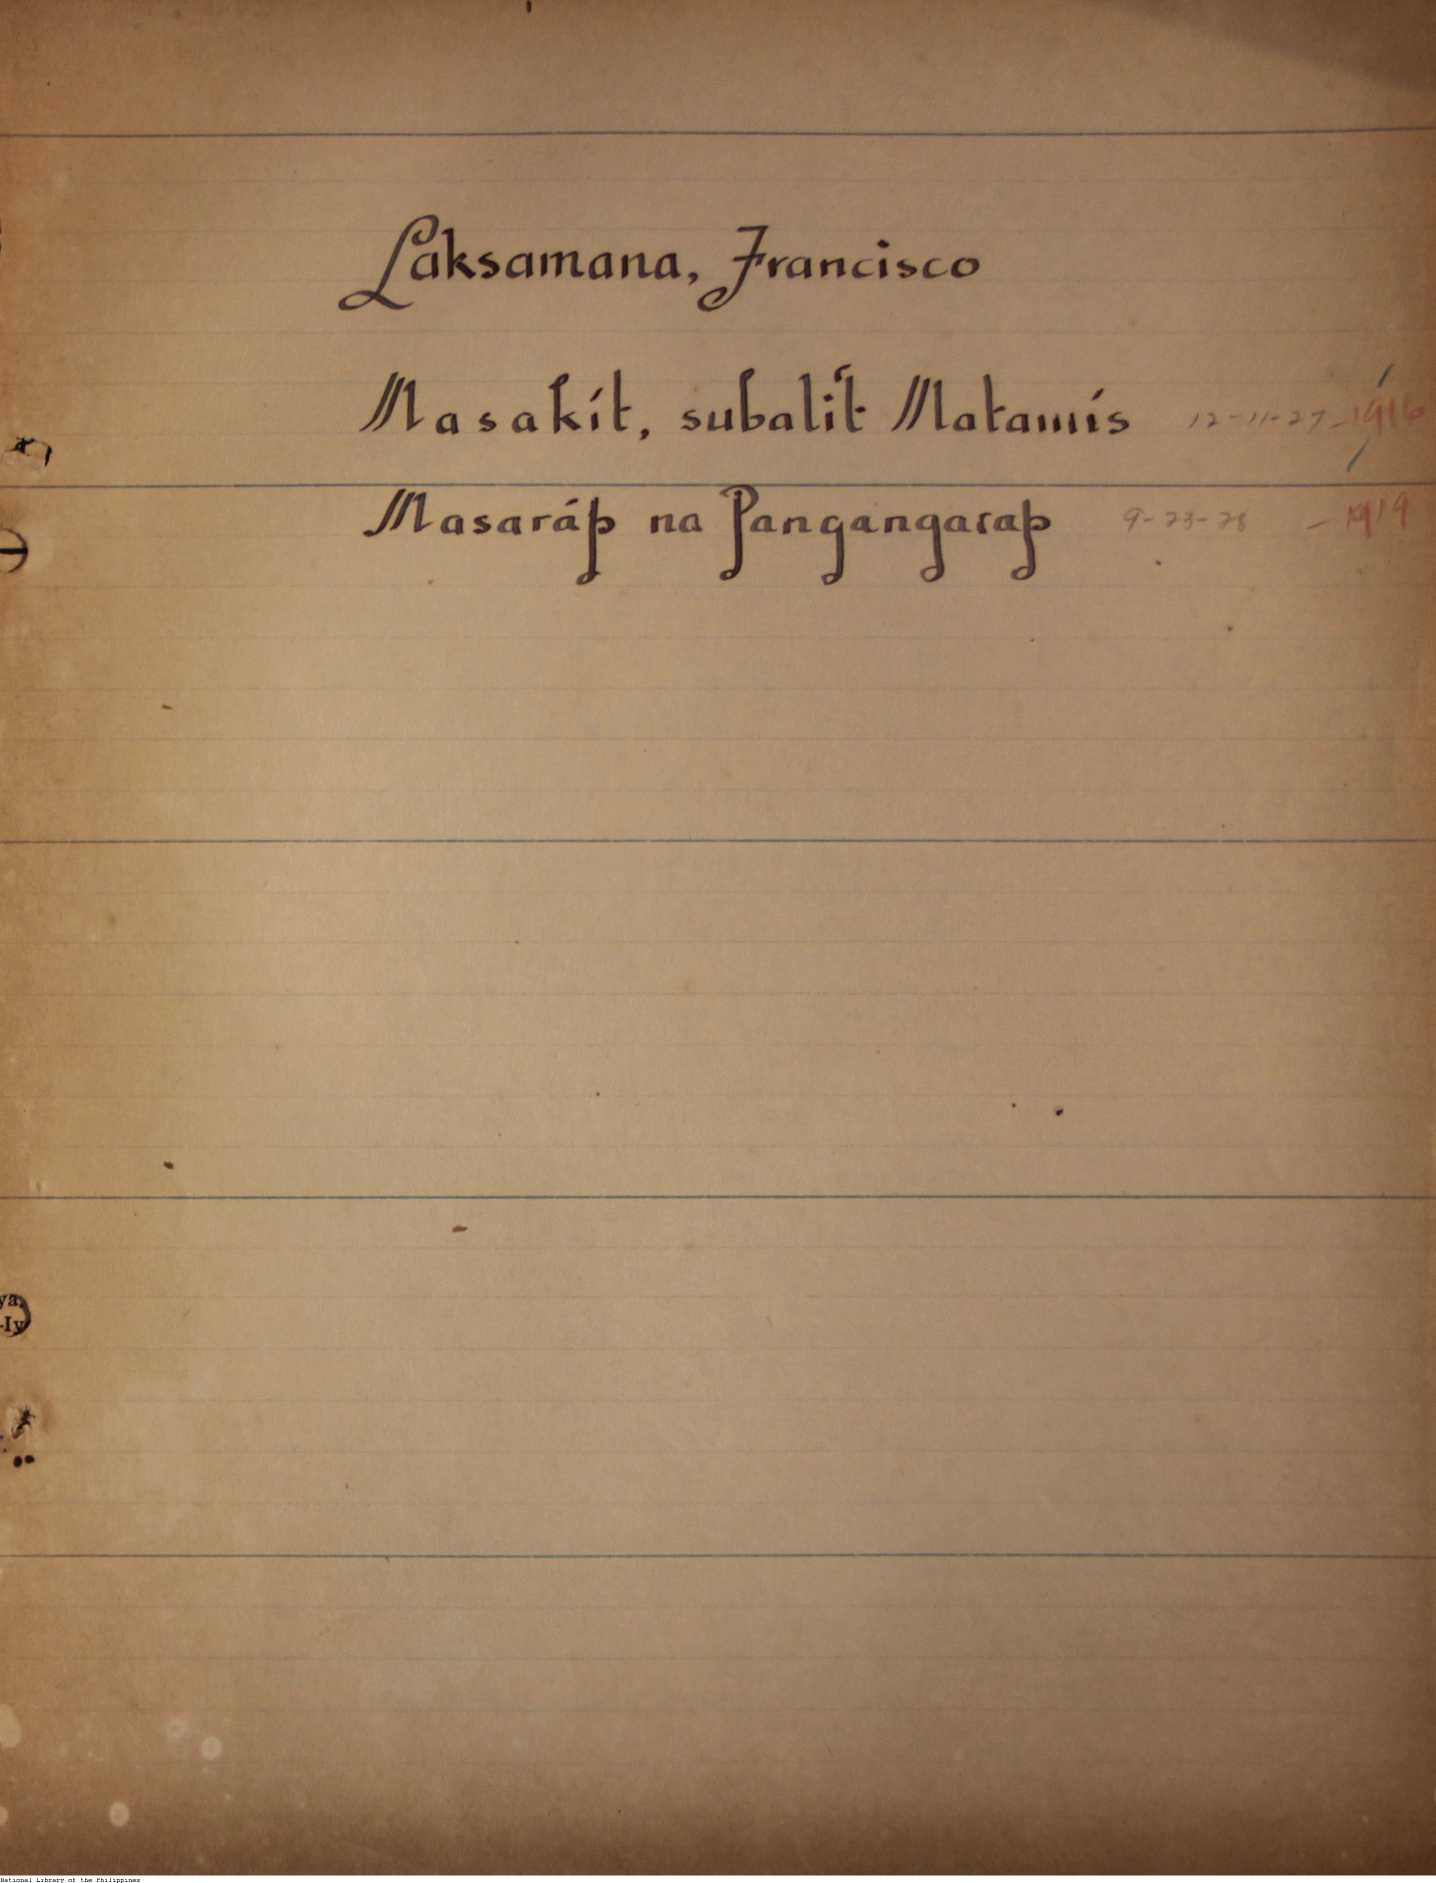 Laksamana, Francisco
Masakít, subali't Matamís 12-11-27 - 1916
Masaráp na Pangangarap 9-23-28 - 1919
ya,
-Iy
National Library of the Philippines